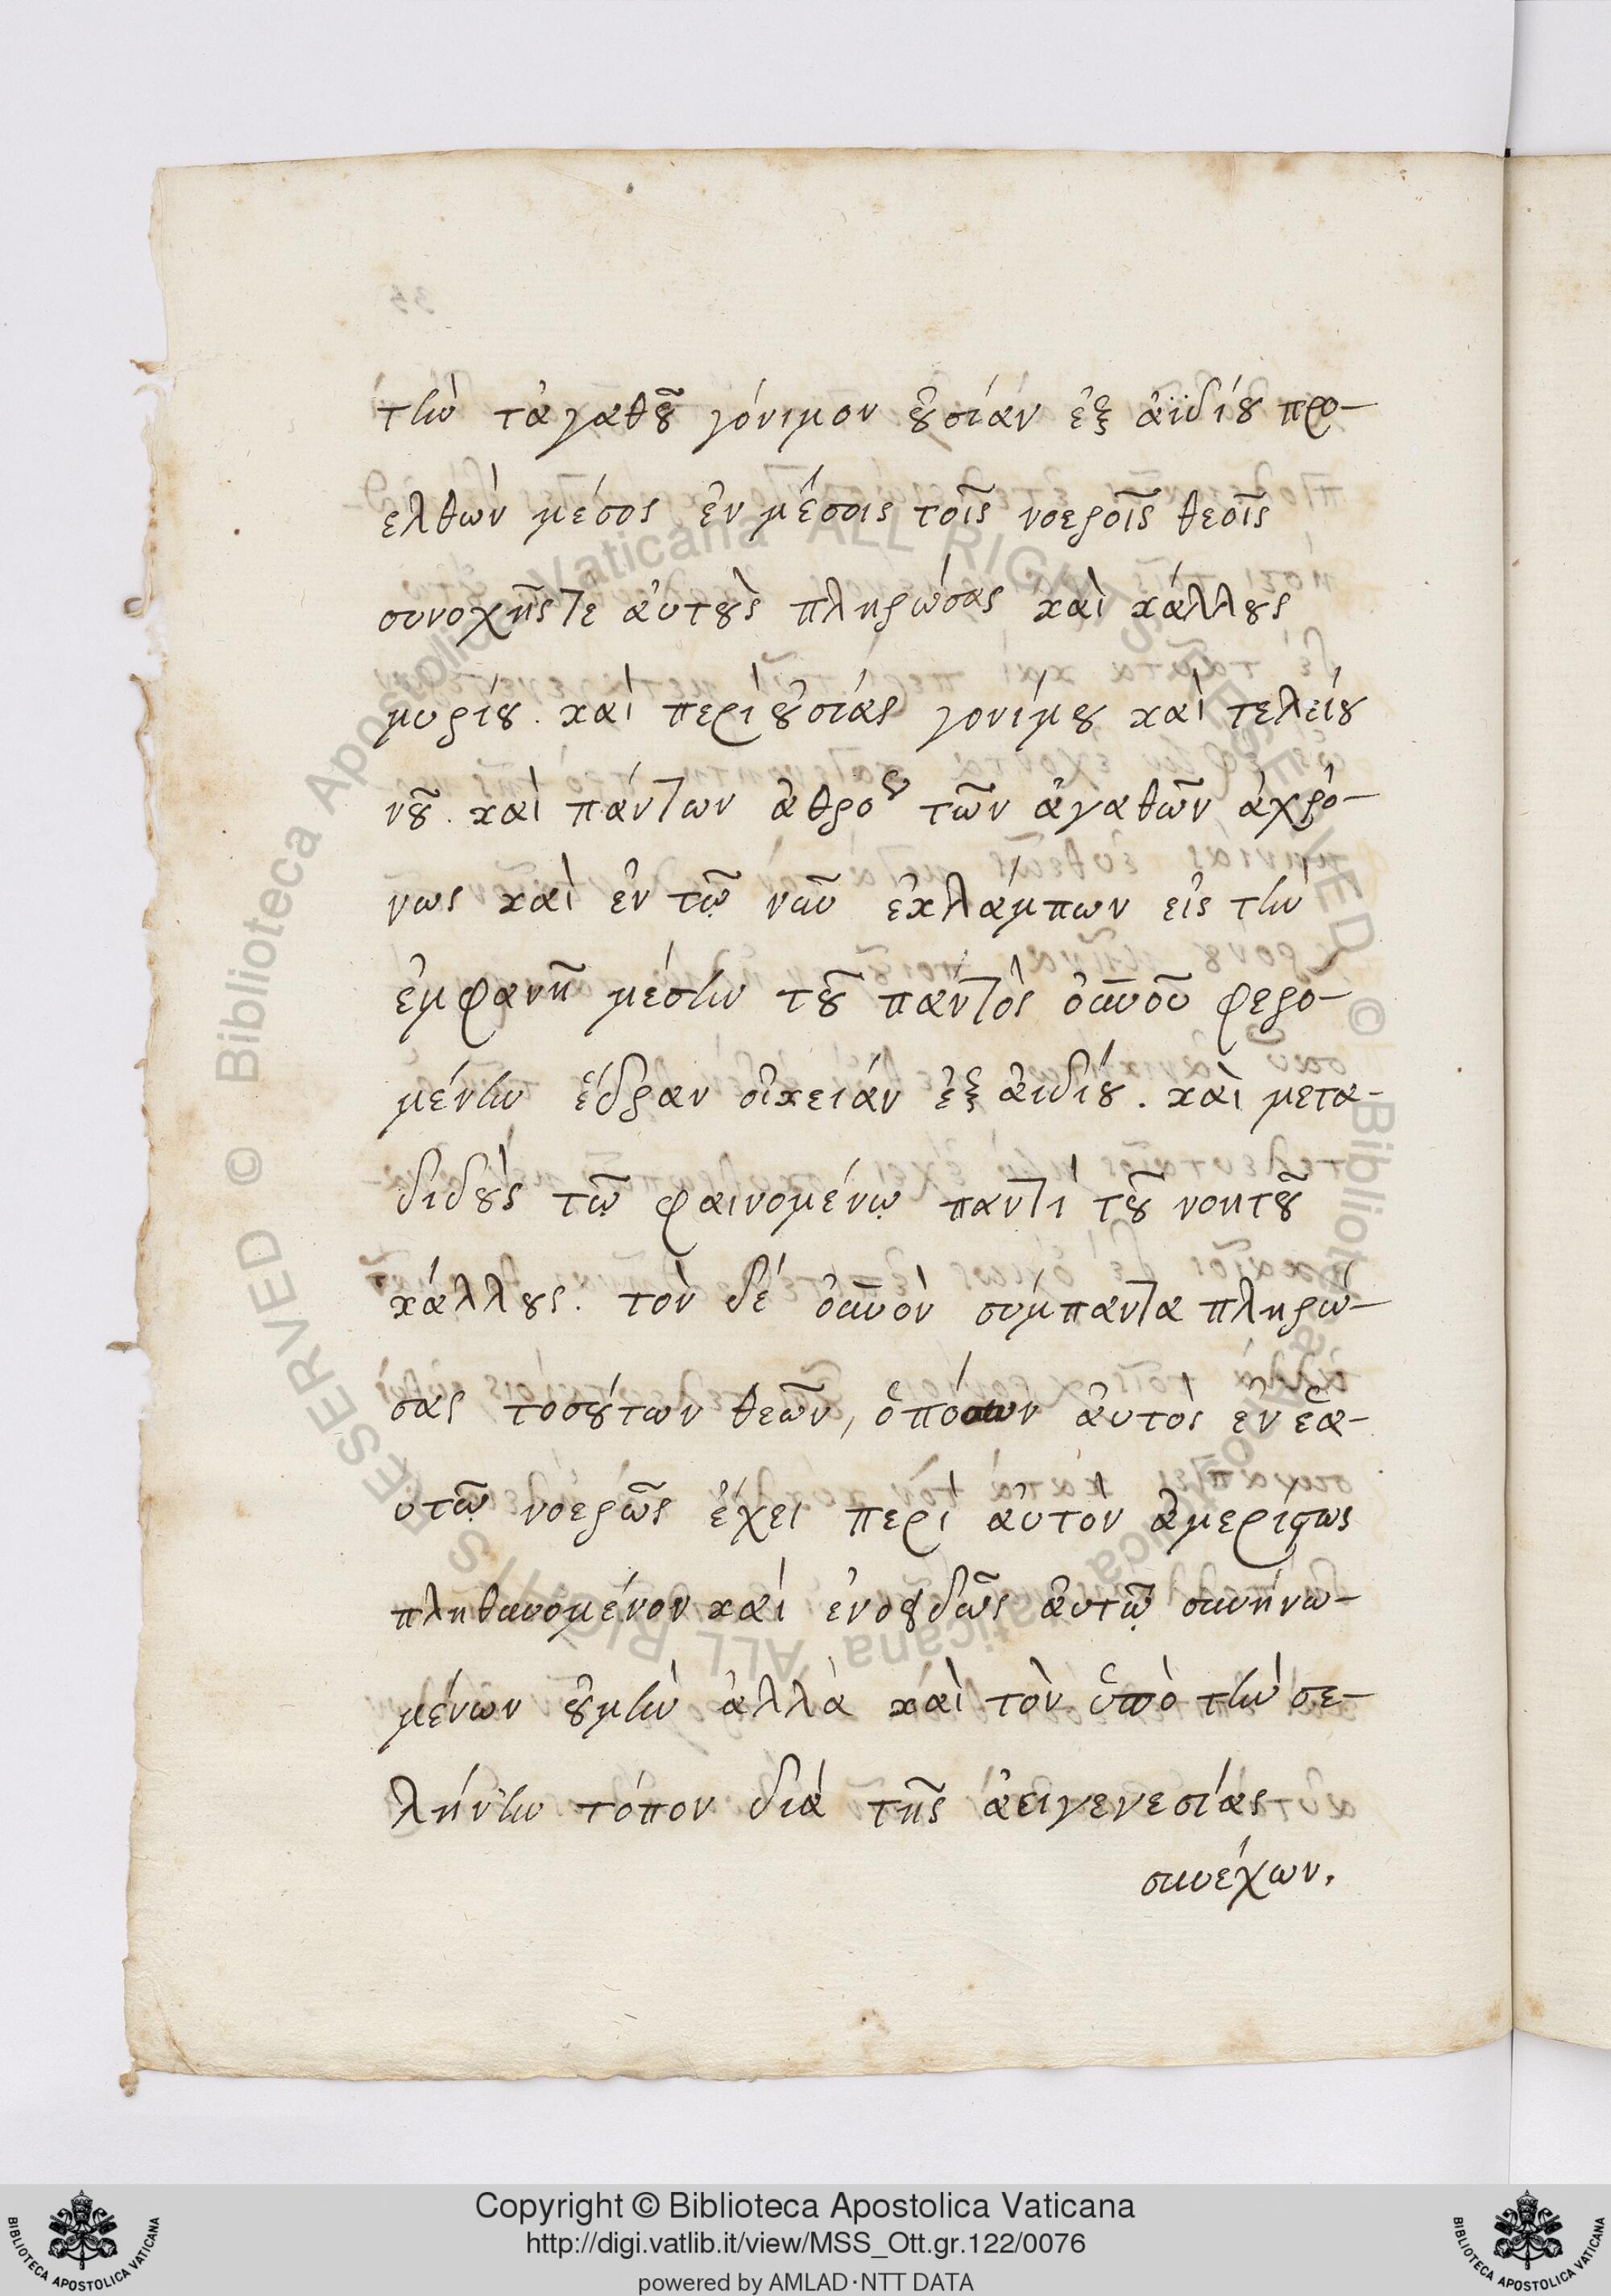 τὴν τἀγαθοῦ γόνιμον οὐσίαν ἐξ ἀϊδίου προ-
ελθὼν μέσος ἐν μέσοις τοῖς νοεροῖς θεοῖς
συνοχῆς τε αὐτοὺς πληρώσας καὶ κάλλους
μυρίου. καὶ περιουσίας γονίμου καὶ τελείου
νοῦ. καὶ πάντων ἀθρόως τῶν ἀγαθῶν ἀχρό-
νως καὶ ἐν τῷ νῦν ἐκλάμπων εἰς τὴν
ἐμφανῆ μέσην τοῦ παντὸς οὐνοῦ φερο-
μένην ἕδραν οἰκείαν ἐξ ἀιδίου. καὶ μετα-
διδοὺς τῷ φαινομένῳ παντὶ τοῦ νοητοῦ
κάλλους. τὸν δὲ οὐνὸν σύμπαντα πληρώ-
σας τοσούτων θεῶν, ὁπόσων αὐτὸς ἐν ἑα-
υτῷ νοερῶς ἔχει περὶ αὐτὸν ἀμερίστως
πληθυνομένον καὶ ἑνοειδῶς αὐτῷ συνηνω-
μένων οὐμὴν ἀλλὰ καὶ τὸν ὑπὸ τὴν σε-
λήνην τόπον διὰ τῆς ἀειγενεσίας
συνέχων.
Copyright © Biblioteca Apostolica Vaticana
http://digi.vatlib.it/view/MSS_Ott.gr.122/0076
powered by AMLAD·NTT DATA